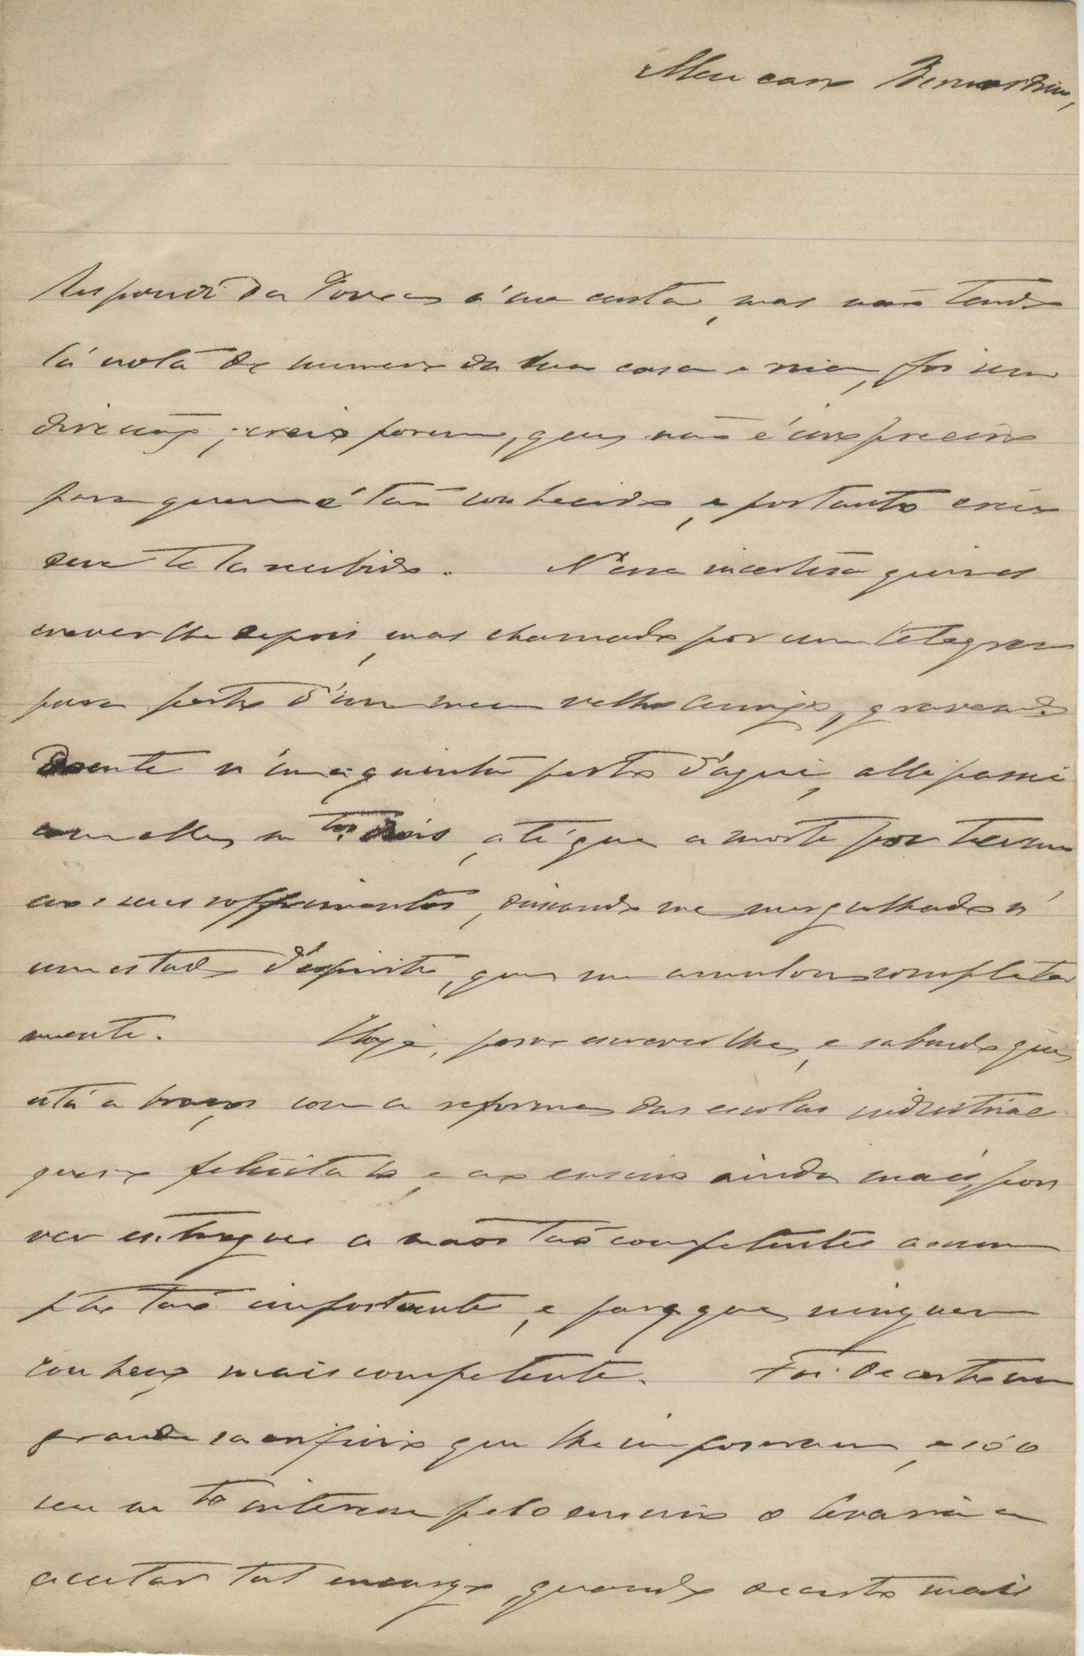 Meu caro Bernardino,
Respondi da Povoa á sua carta, mas não tendo
lá nota do numero da sua casa e rua, foi sem
direcção; creio porem, que, não é isso preciso
para quem é tão conhecido, e portanto creio
tel-a recebido. N'essa incerteza quiz es
crever lhe depois, mas chamado por um telegram
para perto d'um meu velho amigo, gravem.te
doente n'uma quinta perto d'aqui, alli passei
com elle m.tos dias, até que a morte poz termo
aos seus soffrimentos, deixando me mergulhado n'
um estado d'espirito, que me annulou completa
mente. Hoje, posso escrever lhe, e sabendo que,
está a braços com a reforma das escolas industriaes
quero felicital-o, e ao ensino ainda mais, por
ver entregue a mãos tão competentes assum
pto tão importante, e para que, ninguem
conheço mais competente. Foi de certo um
grande sacrificio que lhe impozeram, e só o
seu m.to interesse pelo ensino o levaria a
aceitar tal encargo, quando de certo mais